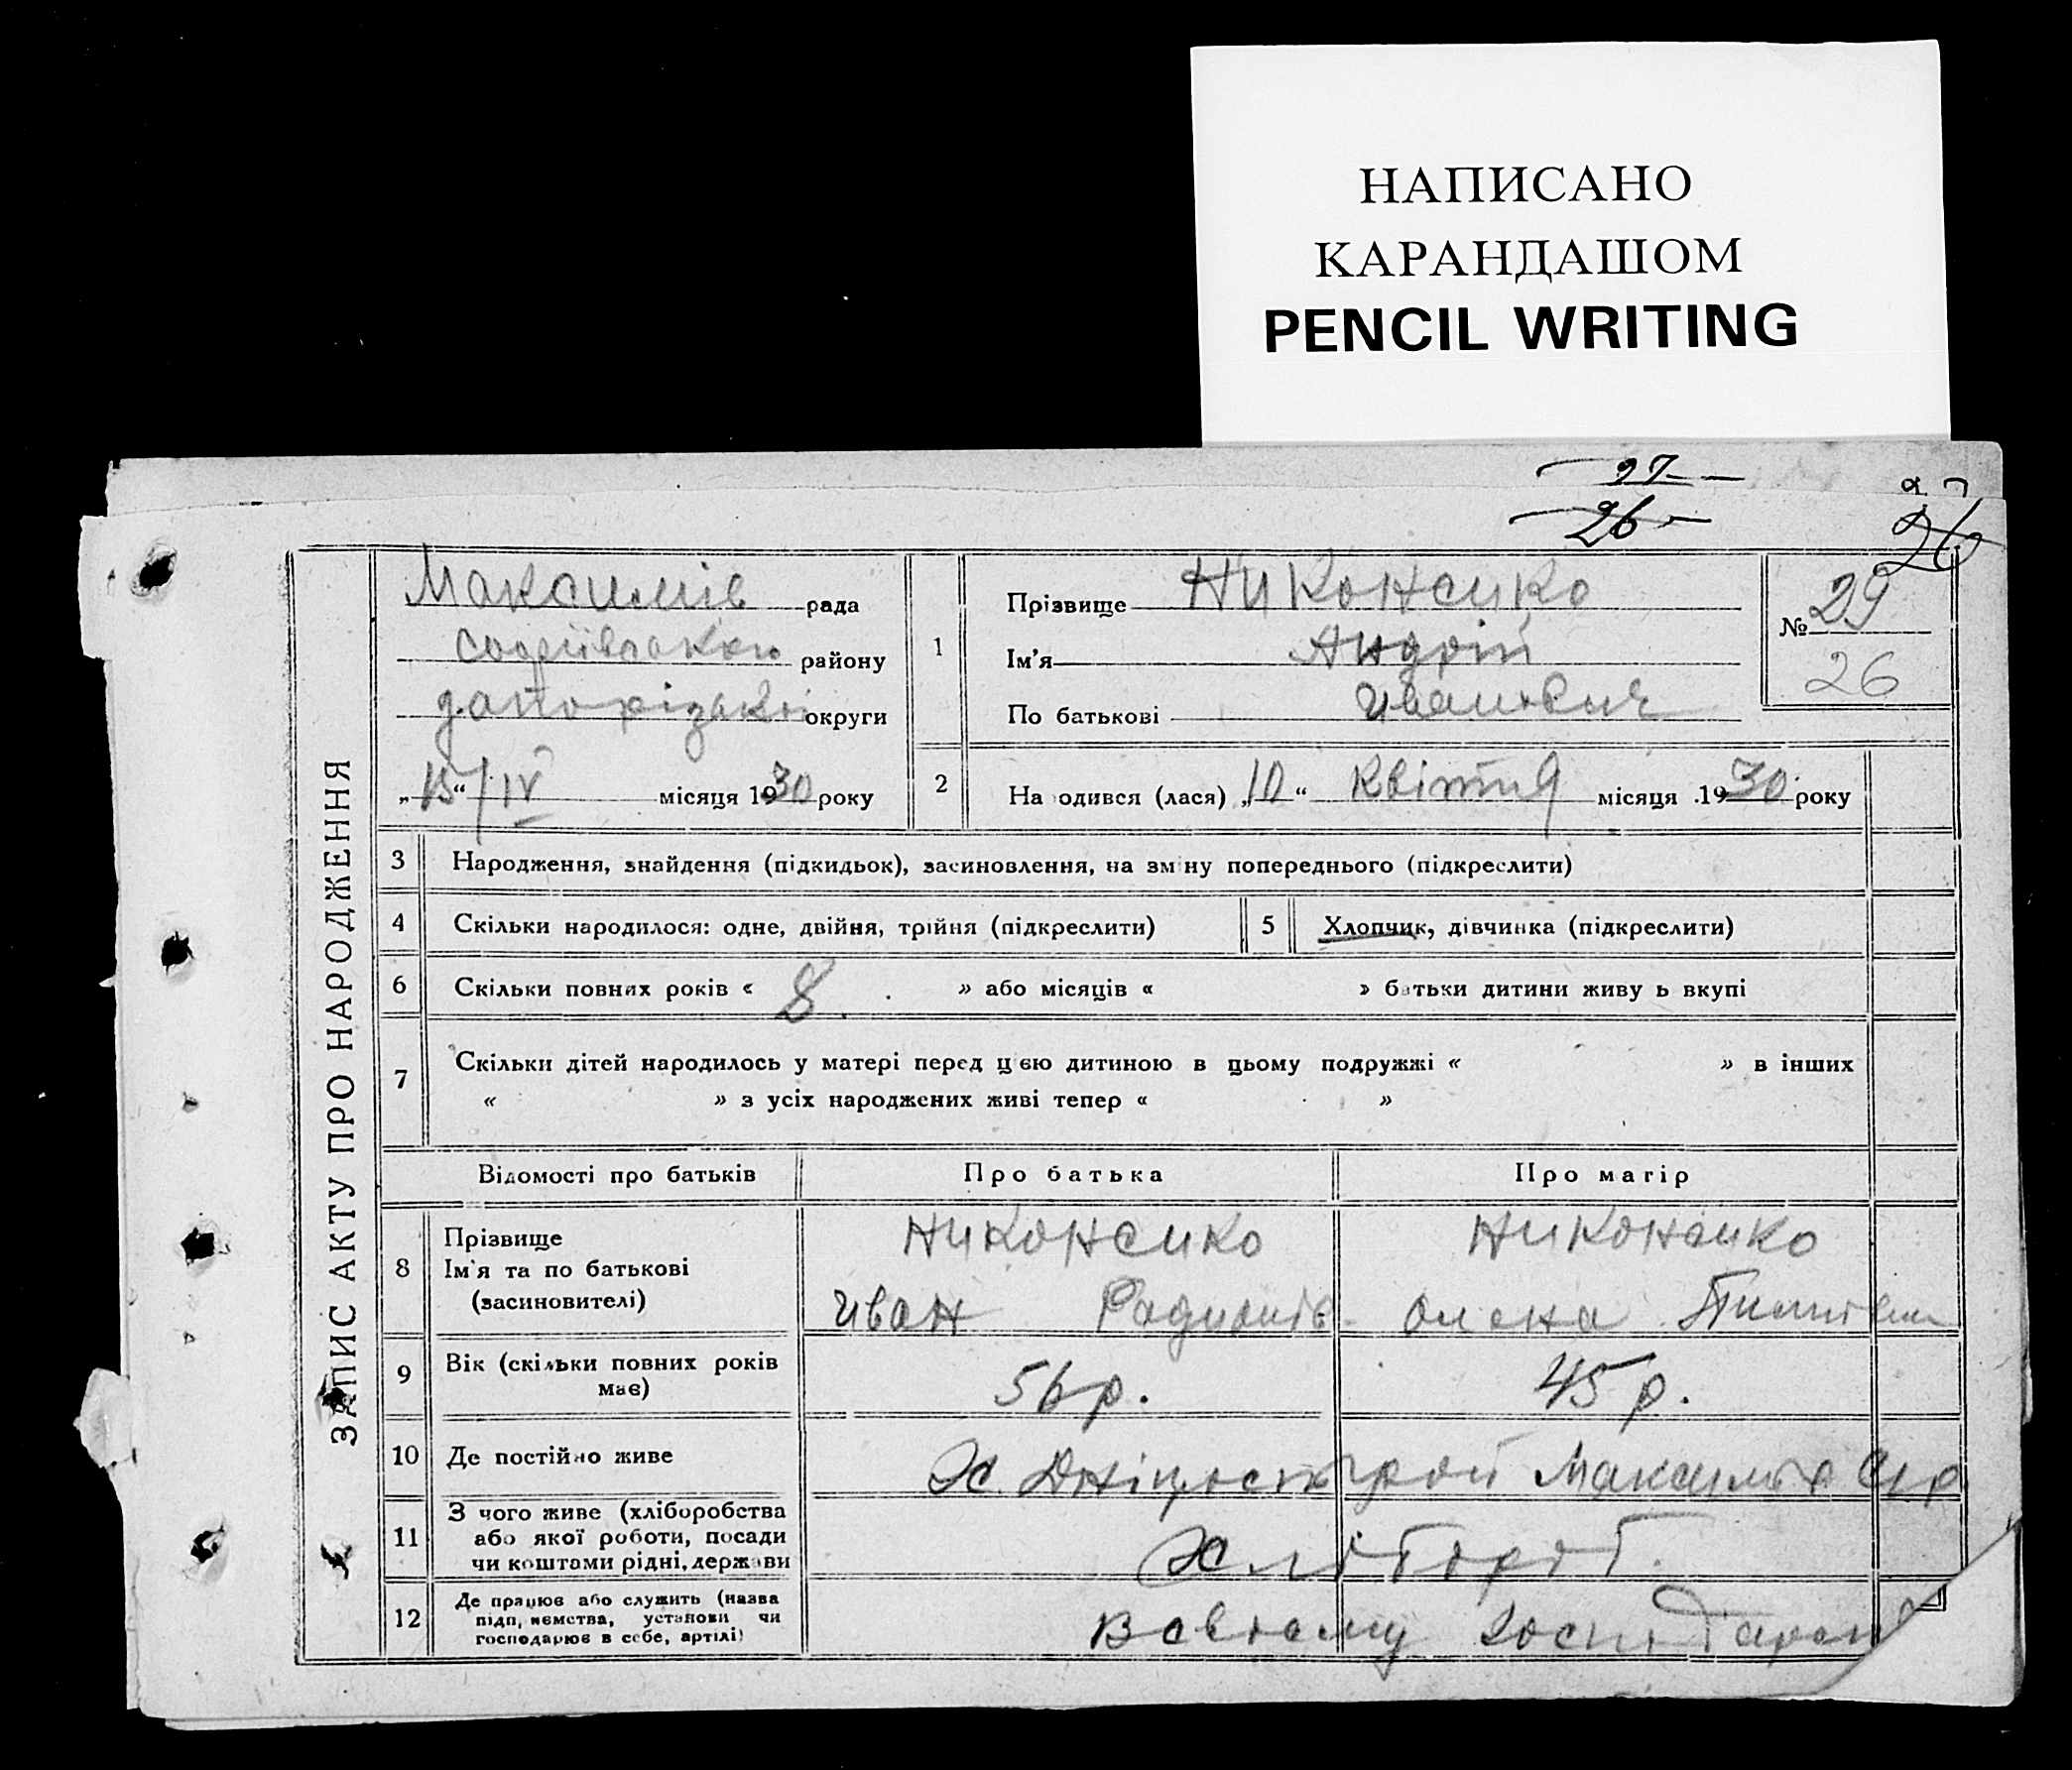 НАПИСАНО
КАРАНДАШОМ
PENCIL WRITING
27
26
26
ЗАПИС АКТУ ПРО НАРОДЖЕННЯ
Максимів рада
Софіївськой району
Запорізькі округи
„15“/IV місяця 1930 року
1 Прізвище Никоненко
Ім'я Андрій
По батькові Иванович
№ 29
26
2 На одився (лася) „10“ Квітня місяця 1930 року
3 Народження, знайдення (підкидьок), засиновлення, на зміну попереднього (підкреслити)
4 Скільки народилося: одне, двійня, трійня (підкреслити) 5 Хлопчик, дівчинка (підкреслити)
6 Скільки повних років « 8 » або місяців « » батьки дитини живу ь вкупі
7 Скільки дітей народилось у матері перед цією дитиною в цьому подружжі « » в інших
« » з усіх народжених живі тепер « »
Відомості про батьків Про батька Про матір
8 Прізвище Никоненко Никоненко
Ім'я та по батькові
(засиновителі) Иван Радионів Олена
9 Вік (скільки повних років
має) 56 р. 45 р.
10 Де постійно живе Х. Дніпрострой Максимів
11 З чого живе (хліборобства
або якої роботи, посади
чи коштами рідні, держави Хлібороб
12 Де працює або служить (назва
підприємства, установи чи
господарює в себе, артілі) В своему господарст